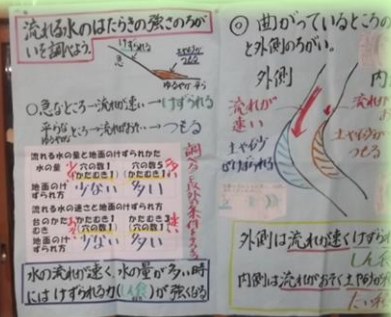 流れる水のはたらきの強さのちが
いを調べよう。
けずられる
急
つもる
ゆるやか 平ら
○急なところ→流れが速い→けずられる
平らな
ところ→流れがおそい→つもる
流れる水の量と地面のけずられかた
水の量 穴の数1 穴の数5
(かたむき1) (かたむき1)
地面のけ
ずられ方 少ない 多い
流れる水の速さと地面のけずられ方
台のかた
むき かたむき1 かたむき3
(穴の数1) (穴の数1)
地面のけ
ずられ方 少ない 多い
水の流れが速く、水の量が多い時
にはけずられる力(しん食)が強くなる
◎ 曲がっているところの
と外側のちがい。
外側
内
流れが
速い
土や砂が
けずられる
流れが
お
土や砂が
つもる
外側は流れが速くけずられ
しん食
内側は流れがおそく土や砂が
たい